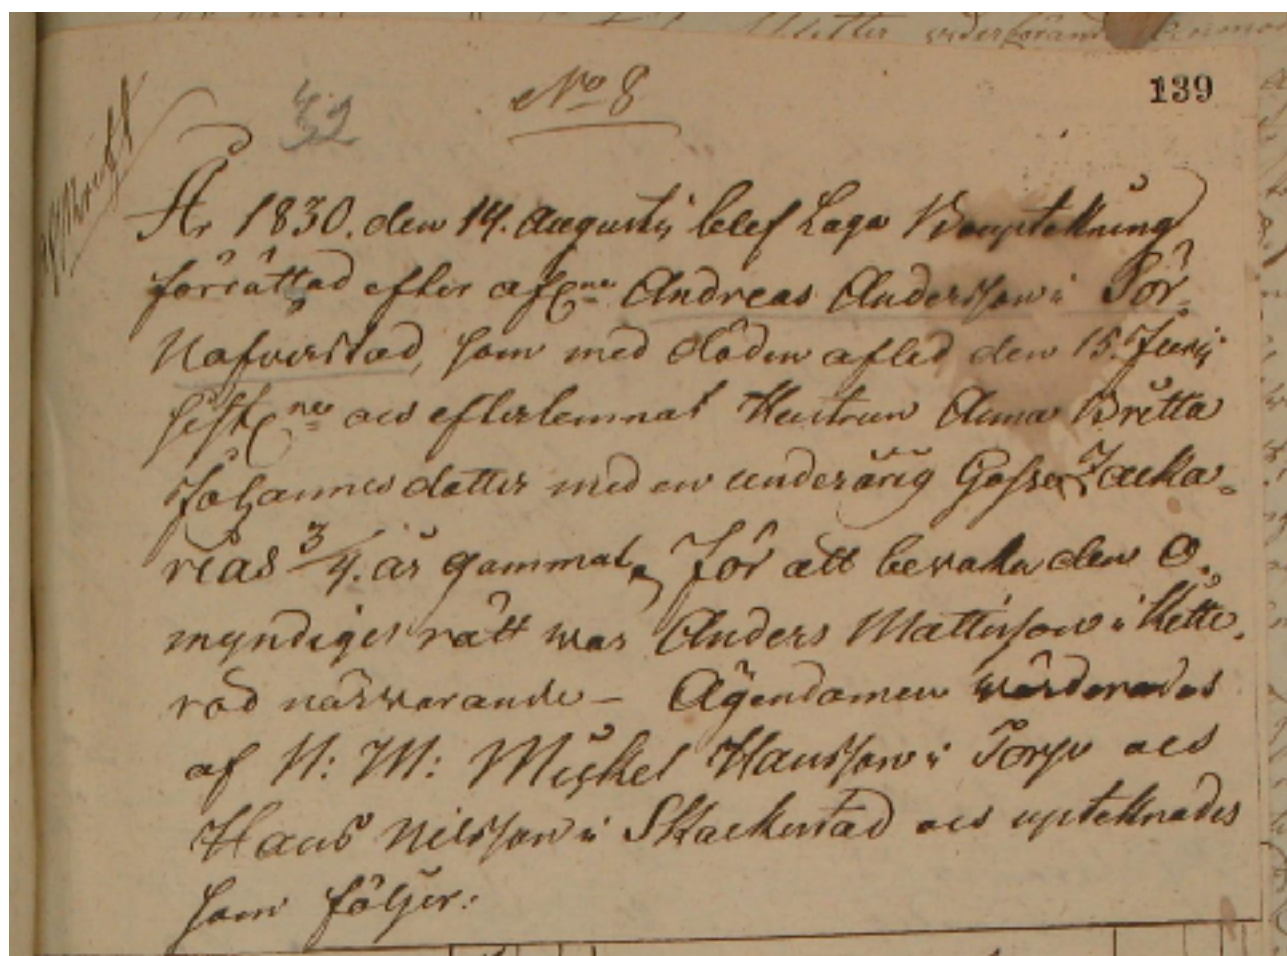 wederbörande
No 8
139
32
Afskrift
År 1830. den 14. Augustij blef Laga Bouptekning
förrättad efter afl:ne Andreas Andersson i Sör-
Nafverstad, som med döden afled den 15. Junij
sistl:ne och efterlemnat Hustrun Anna Britta
Johannesdotter med en underårig Gosse Zacka-
rias 3/4. år gammal, För att bevaka den O-
myndiges rätt war Anders Mattisson i Kette-
röd närwarande – Ägendomen wärderades
af N: M: Mickel Hansson i Torp och
Hans Nilsson i Skackestad och upteknades
som följer: